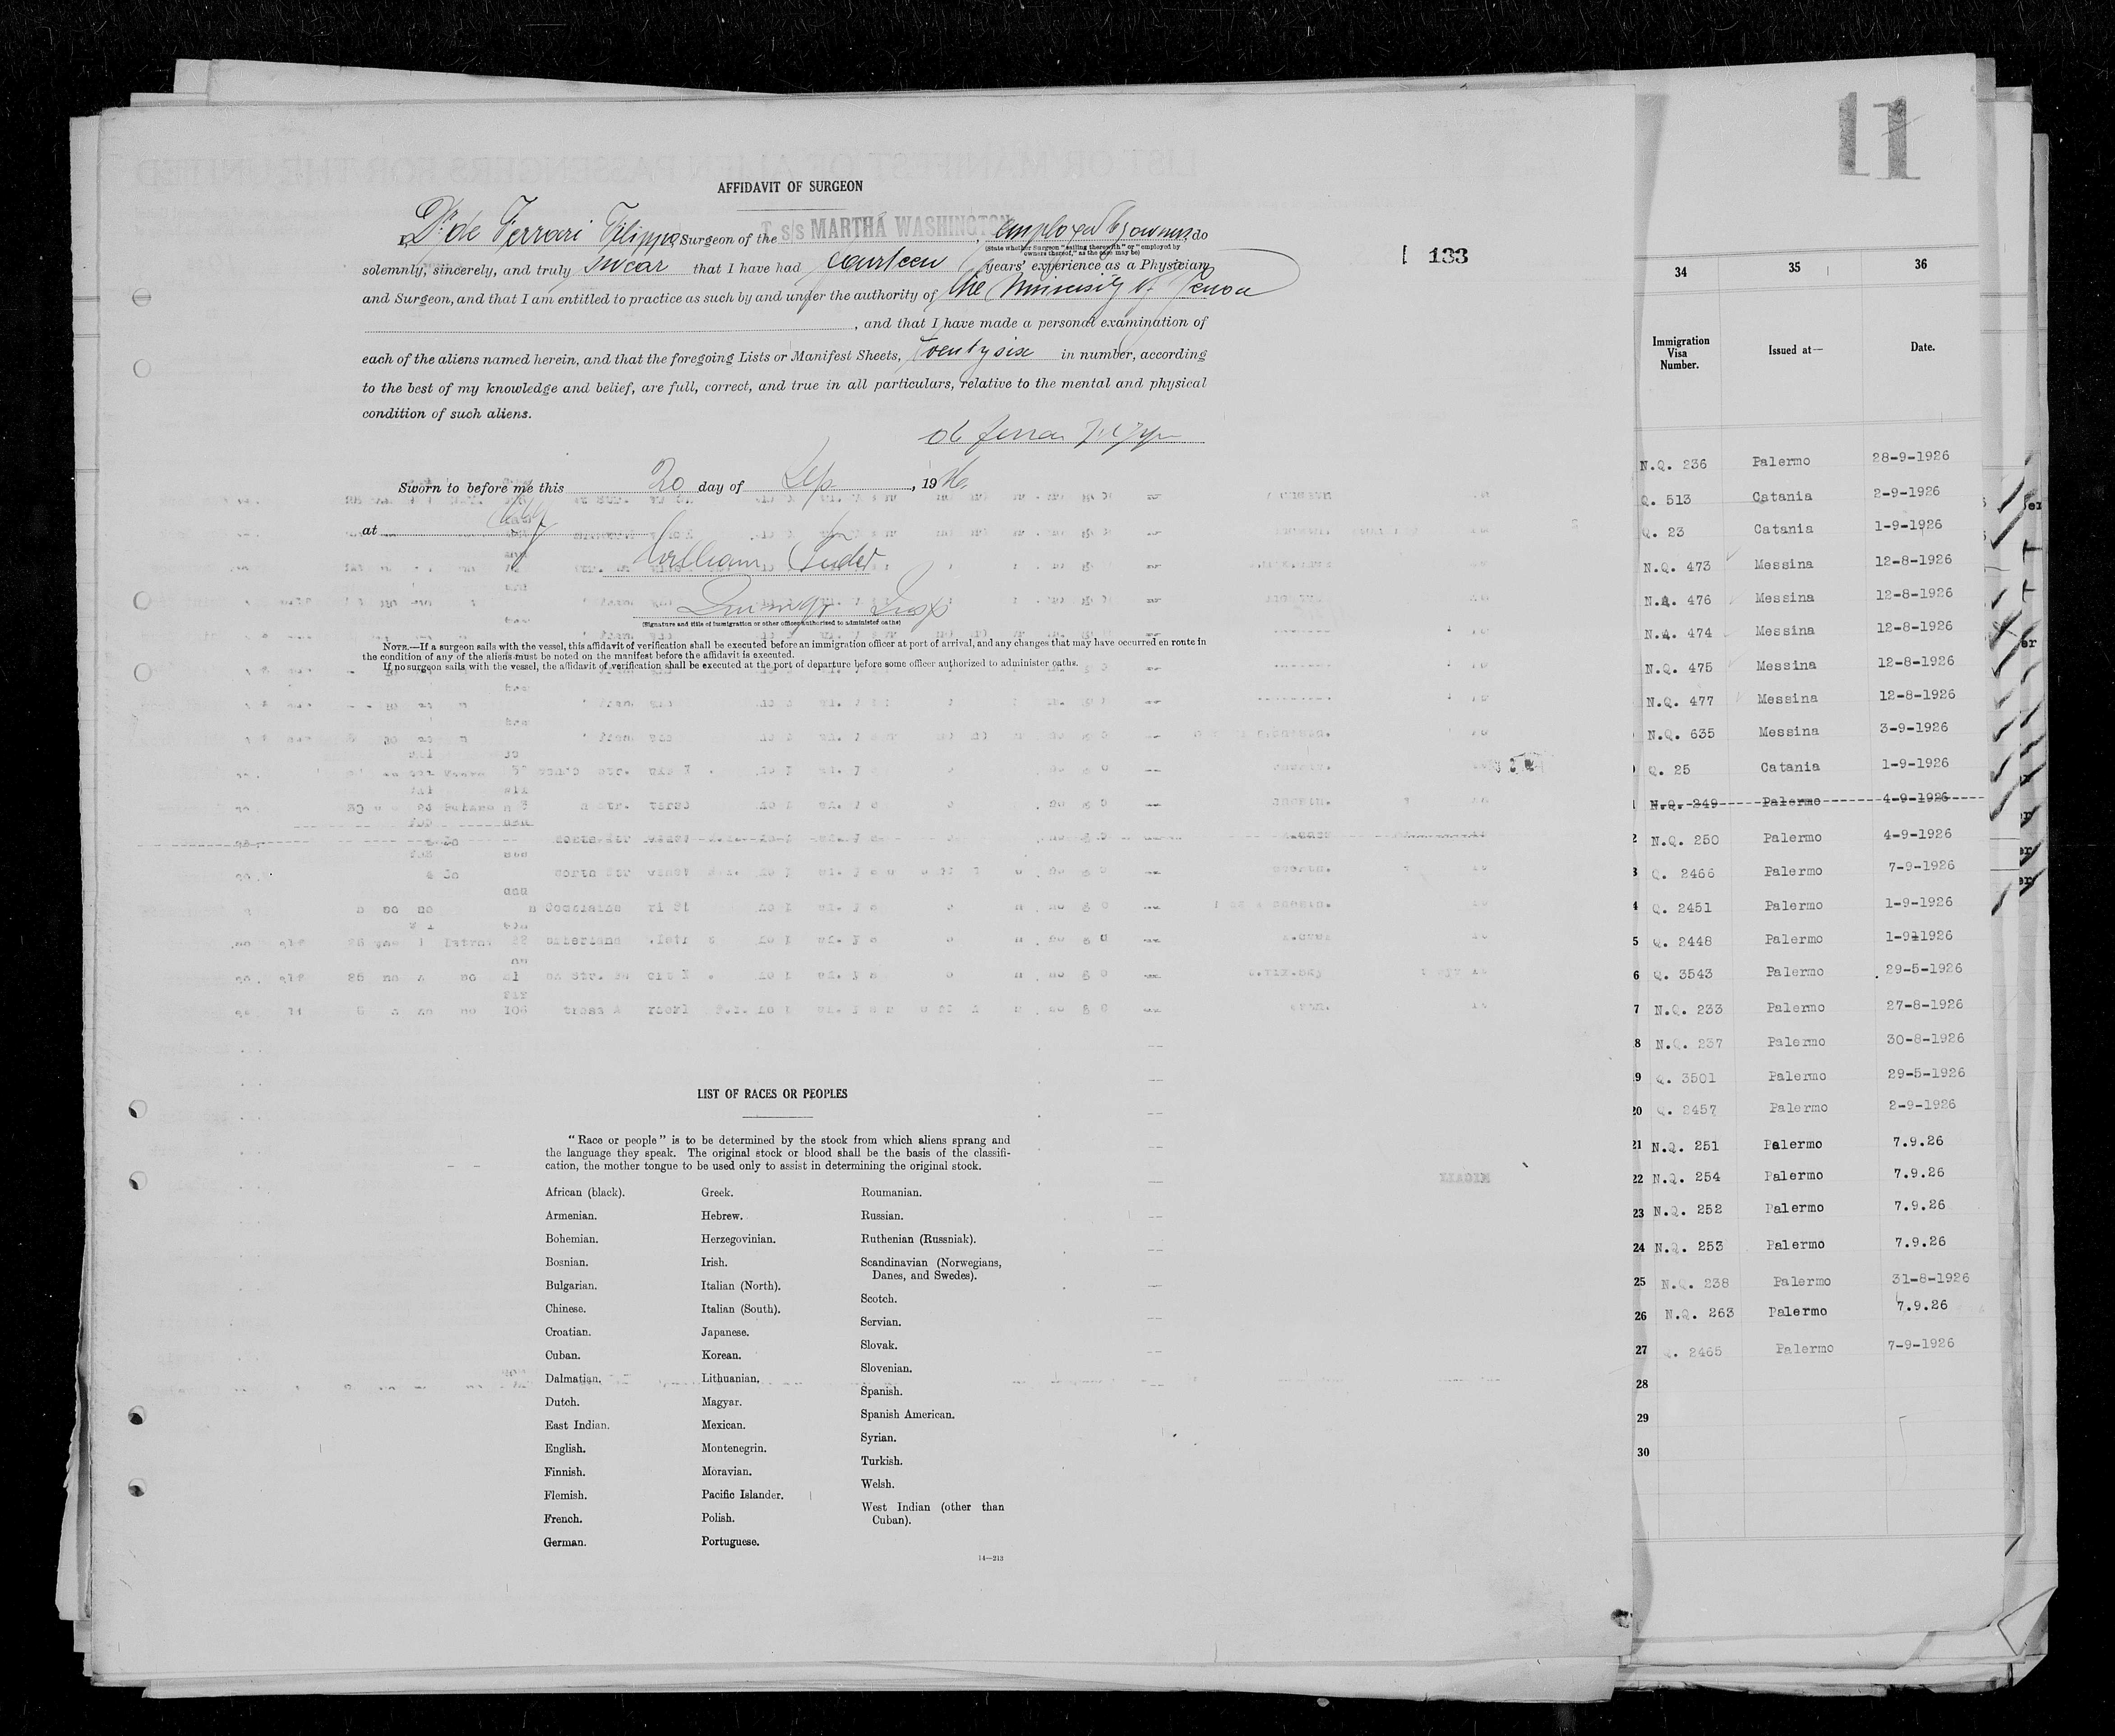 11
AFFIDAVIT OF SURGEON
I, Dr. de Ferrari Filippo, Surgeon of the T. s/s MARTHA WASHINGTON, employed by owners, do
(State whether Surgeon "sailing therewith" or "employed by
owners thereof," as the case may be)
133
solemnly, sincerely, and truly swear that I have had fourteen years' experience as a Physician
and Surgeon, and that I am entitled to practice as such by and under the authority of the University of Genoa
, and that I have made a personal examination of
each of the aliens named herein, and that the foregoing Lists or Manifest Sheets, Twenty six in number, according
to the best of my knowledge and belief, are full, correct, and true in all particulars, relative to the mental and physical
condition of such aliens.
Sworn to before me this 20 day of Sep, 1926
at
William
(Signature and title of immigration or other officer authorized to administer oaths)
NOTE.—If a surgeon sails with the vessel, this affidavit of verification shall be executed before an immigration officer at port of arrival, and any changes that may have occurred en route in
the condition of any of the aliens must be noted on the manifest before the affidavit is executed.
If no surgeon sails with the vessel, the affidavit of verification shall be executed at the port of departure before some officer authorized to administer oaths.
LIST OF RACES OR PEOPLES
"Race or people" is to be determined by the stock from which aliens sprang and
the language they speak. The original stock or blood shall be the basis of the classifi-
cation, the mother tongue to be used only to assist in determining the original stock.
African (black).
Armenian.
Bohemian.
Bosnian.
Bulgarian.
Chinese.
Croatian.
Cuban.
Dalmatian.
Dutch.
East Indian.
English.
Finnish.
Flemish.
French.
German.
Greek.
Hebrew.
Herzegovinian.
Irish.
Italian (North).
Italian (South).
Japanese.
Korean.
Lithuanian.
Magyar.
Mexican.
Montenegrin.
Moravian.
Pacific Islander.
Polish.
Portuguese.
Roumanian.
Russian.
Ruthenian (Russniak).
Scandinavian (Norwegians,
Danes, and Swedes).
Scotch.
Servian.
Slovak.
Slovenian.
Spanish.
Spanish American.
Syrian.
Turkish.
Welsh.
West Indian (other than
Cuban).
14—213
34 35 36
Immigration
Visa
Number.
Issued at—
Date.
N.Q. 236 Palermo 28-9-1926
Q. 513 Catania 2-9-1926
Q. 23 Catania 1-9-1926
N.Q. 473 Messina 12-8-1926
N.Q. 476 Messina 12-8-1926
N.Q. 474 Messina 12-8-1926
N.Q. 475 Messina 12-8-1926
N.Q. 477 Messina 12-8-1926
N.Q. 635 Messina 3-9-1926
Q. 25 Catania 1-9-1926
N.Q. 249 Palermo 4-9-1926
2 N.Q. 250 Palermo 4-9-1926
3 Q. 2466 Palermo 7-9-1926
4 Q. 2451 Palermo 1-9-1926
5 Q. 2448 Palermo 1-9-1926
6 Q. 3543 Palermo 29-5-1926
7 N.Q. 233 Palermo 27-8-1926
8 N.Q. 237 Palermo 30-8-1926
19 Q. 3501 Palermo 29-5-1926
20 Q. 2457 Palermo 2-9-1926
21 N.Q. 251 Palermo 7.9.26
22 N.Q. 254 Palermo 7.9.26
23 N.Q. 252 Palermo 7.9.26
24 N.Q. 253 Palermo 7.9.26
25 N.Q. 238 Palermo 31-8-1926
26 N.Q. 263 Palermo 7.9.26
27 Q. 2465 Palermo 7-9-1926
28
29
30